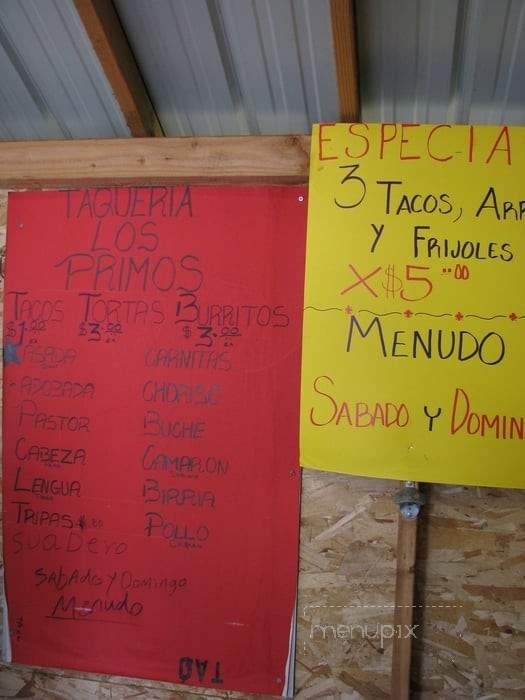 TAQUERIA
LOS
PRIMOS
TACOS TORTAS BURRITOS
$1.00 $3.00 $3.00
ASADA CARNITAS
ADOBADA CHORISO
PASTOR BUCHE
CABEZA CAMARON
LENGUA BIRRIA
TRIPAS POLLO
SUADERO
SABADO Y DOMINGO
Menudo
ESPECIA
3 TACOS, ARR
Y FRIJOLES
X $5.00
MENUDO
SABADO Y DOMIN
menupix